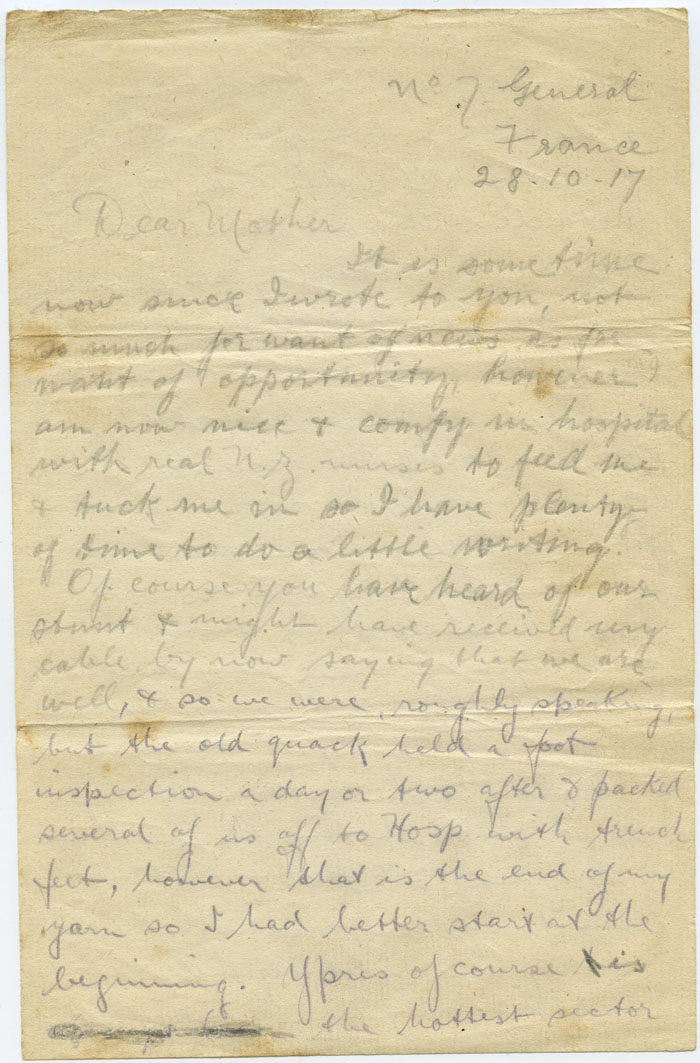 No 7 General
France
28-10-17
Dear Mother
It is some time
now since I wrote to you, not
so much for want of news as for
want of opportunity, however I
am now nice & comfy in hospital
with real N.Z. nurses to feed me
& tuck me in so I have plenty
of time to do a little writing.
Of course you have heard of our
stunt & might have received my
cable by now saying that we are
well, & so we were, roughly speaking,
but the old quack held a foot
inspection a day or two after & packed
several of us off to Hosp with trench
feet, however that is the end of my
yarn so I had better start at the
beginning. Ypres of course is
the hottest sector